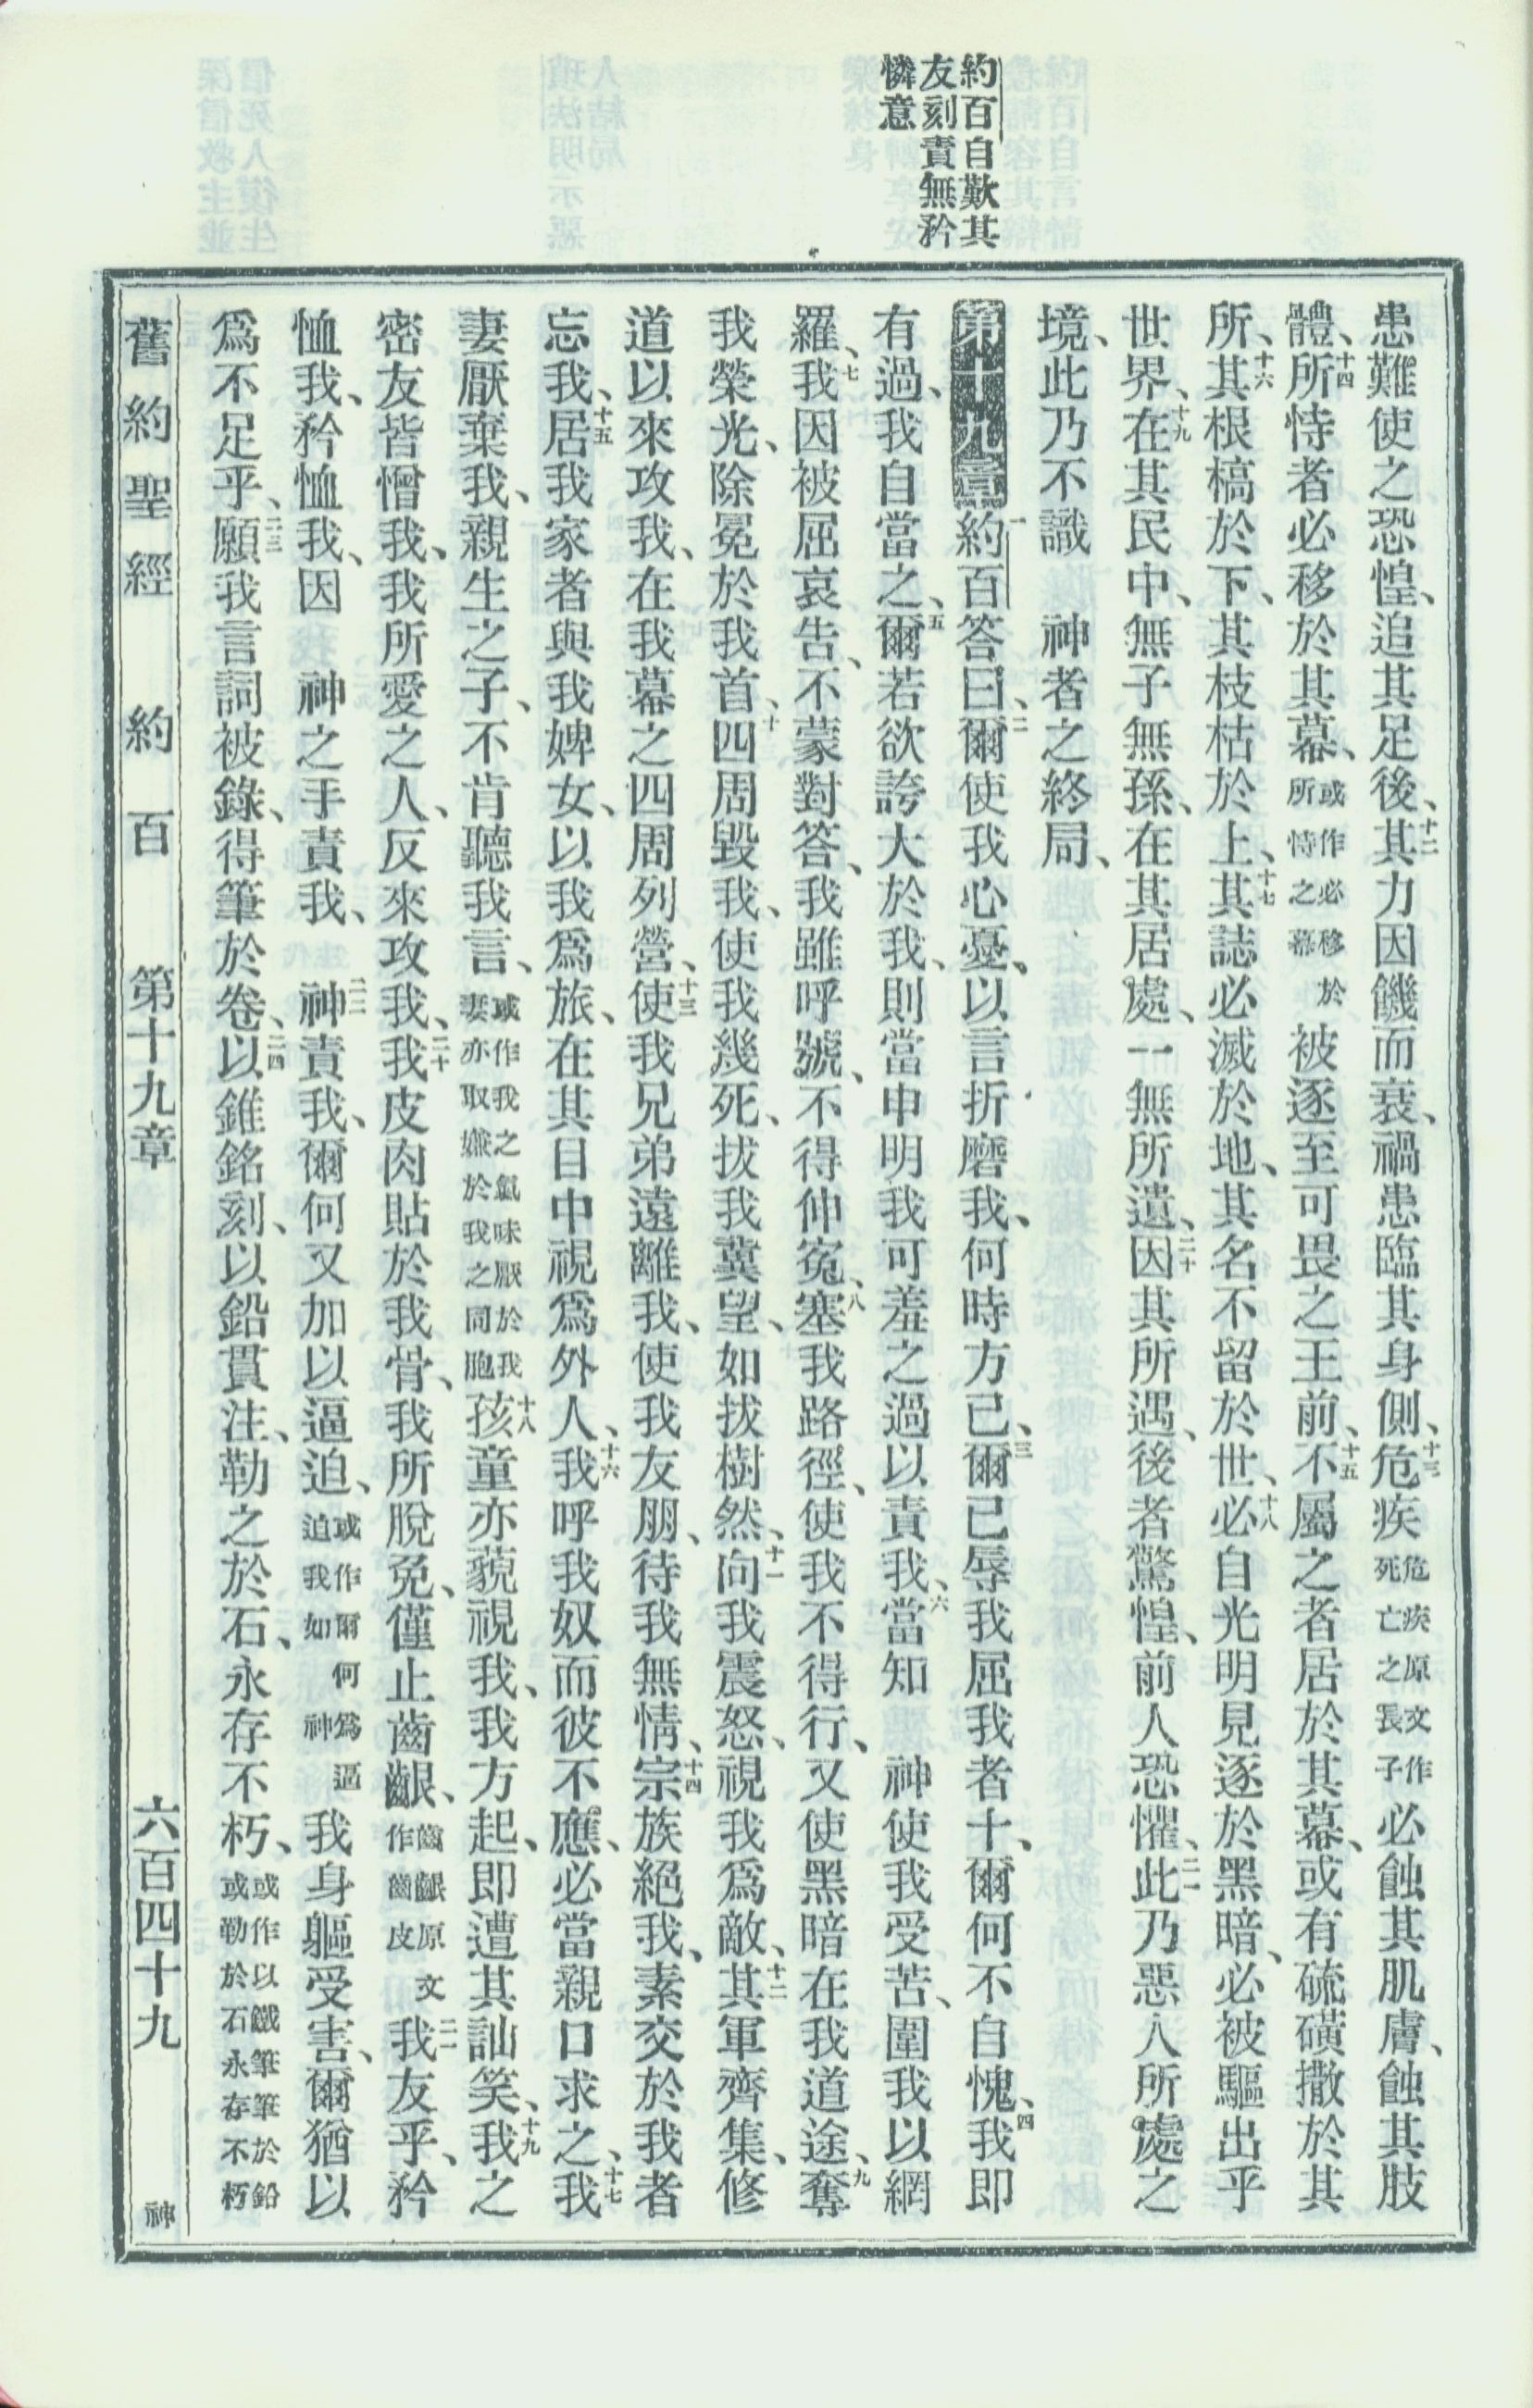 約百自歎其
友刻責無矜
憐意
患難使之恐惶、追其足後、十二其力因饑而衰、禍患臨其身側、十三危疾危疾原文作死亡之長子必蝕其肌膚、蝕其肢
體、十四所恃者必移於其幕、或作必移於所恃之幕被逐至可畏之王前、十五不屬之者居於其幕、或有硫磺撒於其
所、十六其根槁於下、其枝枯於上、十七其誌必滅於地、其名不留於世、十八必自光明見逐於黑暗、必被驅出乎
世界、十九在其民中、無子無孫、在其居處、一無所遺、二十因其所遇、後者驚惶、前人恐懼、二一此乃惡人所處之
境、此乃不識 神者之終局、
第十九章 一約百答曰、二爾使我心憂、以言折磨我、何時方已、三爾已辱我屈我者十、爾何不自愧、四我即
有過、我自當之、五爾若欲誇大於我、則當申明我可羞之過以責我、六當知 神使我受苦、圍我以網
羅、七我因被屈哀告、不蒙對答、我雖呼號、不得伸寃、八塞我路徑、使我不得行、又使黑暗在我道途、九奪
我榮光、除冕於我首、十四周毀我、使我幾死、拔我冀望、如拔樹然、十一向我震怒、視我爲敵、十二其軍齊集、修
道以來攻我、在我幕之四周列營、十三使我兄弟遠離我、使我友朋、待我無情、十四宗族絕我、素交於我者
忘我、十五居我家者與我婢女、以我爲旅、在其目中視爲外人、十六我呼我奴而彼不應、必當親口求之、十七我
妻厭棄我、親生之子、不肯聽我言、或作我之氣味厭於我妻亦取嫌於我之同胞十八孩童亦藐視我、我方起、即遭其訕笑、十九我之
密友皆憎我、我所愛之人、反來攻我、二十我皮肉貼於我骨、我所脫免、僅止齒齦、齒齦原文作齒皮二一我友乎、矜
恤我、矜恤我、因 神之手責我、二二神責我、爾何又加以逼迫、或作爾何爲逼迫我如神我身軀受害、爾猶以
爲不足乎、二三願我言詞被錄、得筆於卷、二四以錐銘刻、以鉛貫注、勒之於石、永存不朽、或作以鐵筆筆於鉛或勒於石永存不朽
舊約聖經 約百 第十九章 六百四十九 神